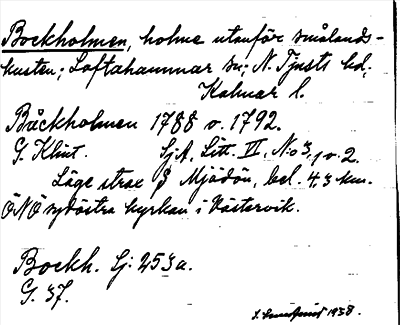 Bockholmen, holme utanför smålands-
kusten; Loftahammar sn; N. Tjusts hd;
Kalmar l.
Båckholmen 1788 o. 1792.
G. Klint. SjA, Litt. VI, No 3, 1 o. 2.
Läge strax S Mjödön, bel. 4,3 km.
ÖNÖ sydöstra kyrkan i Västervik.
Bockh. Gj. 253a.
G. 37.
1938.